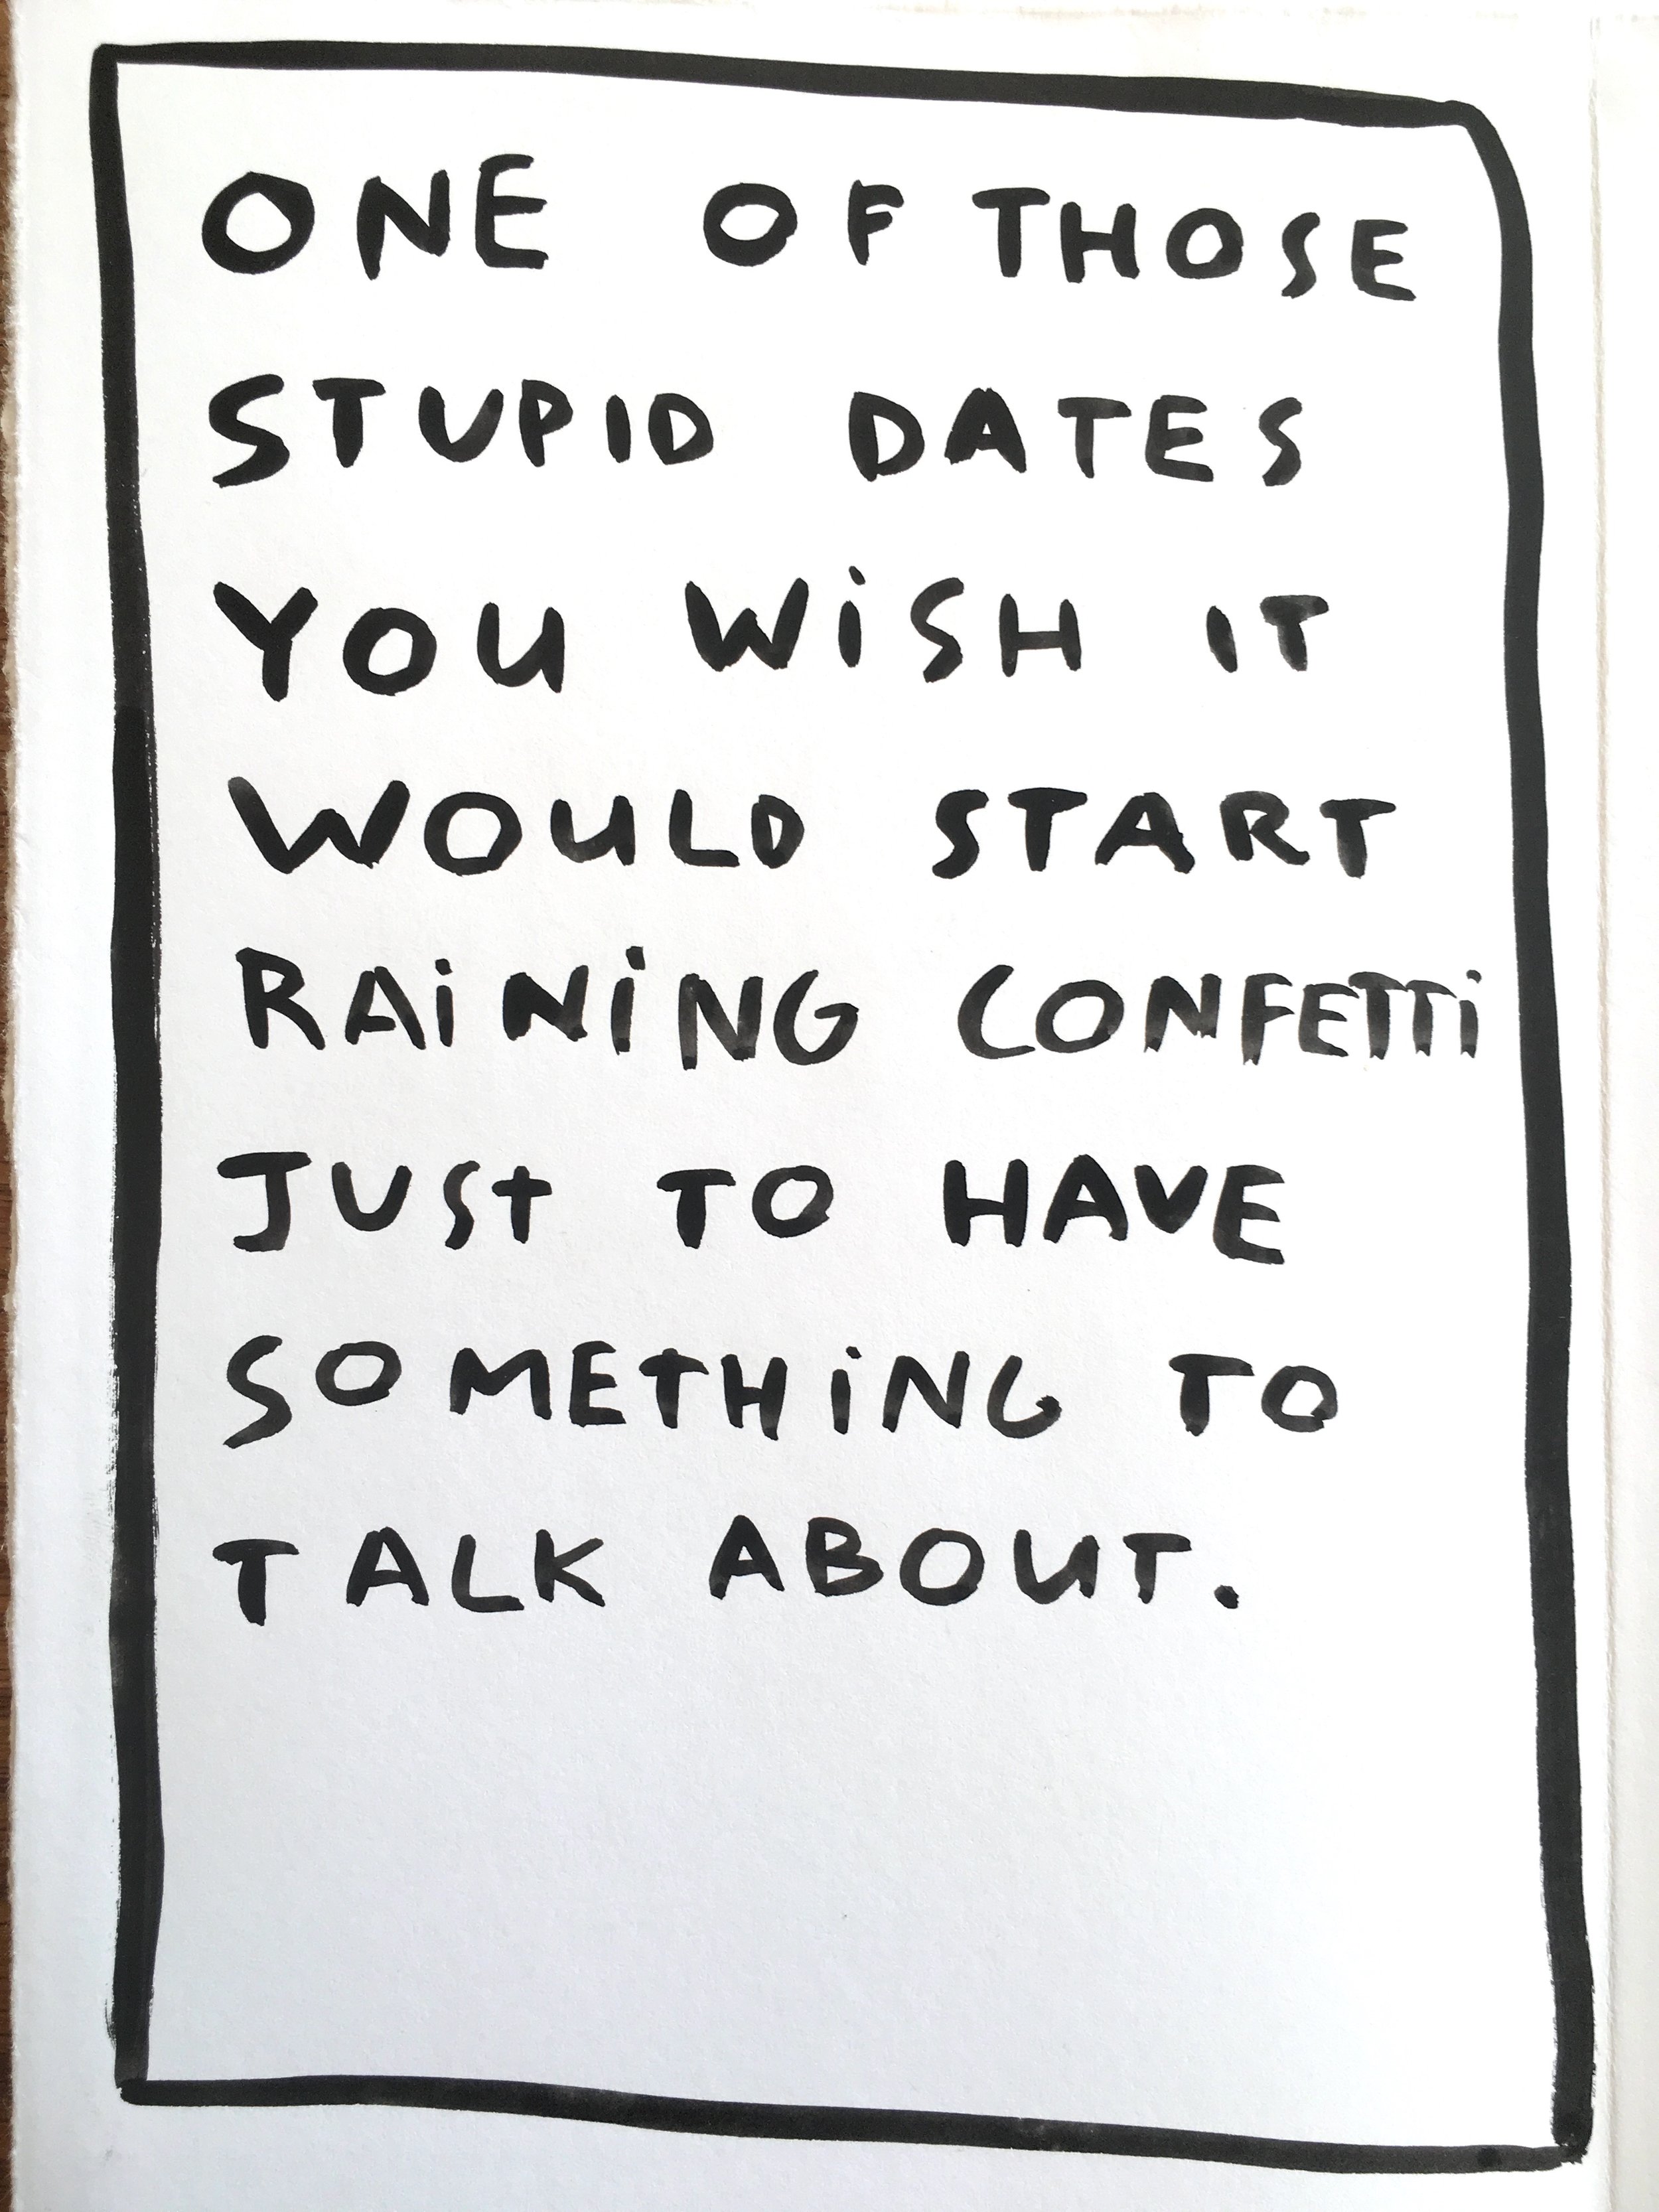 ONE OF THOSE
STUPID DATES
YOU WiSH IT
WOULD START
RAiNiNG CONFETTi
JUST TO HAVE
SOMETHiNG TO
TALK ABOUT.